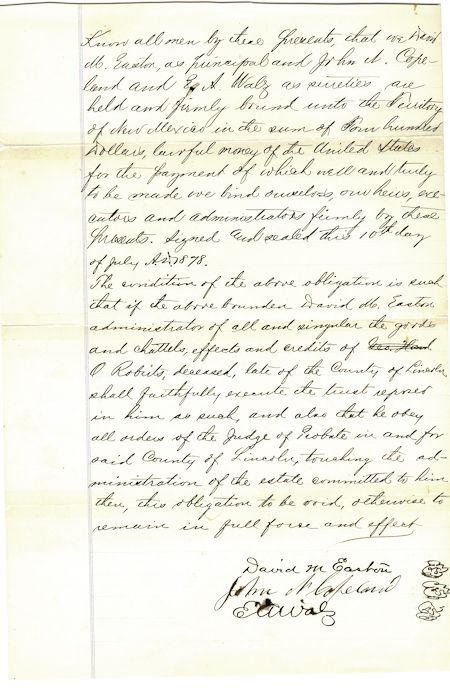 Know all men by these presents, that we David
M. Easton, as principal and John N. Cope-
land and E. A. Walz as sureties are
held and firmly bound unto the Territory
of New Mexico in the sum of Four hundred
Dollars, lawful money of the United States
for the payment of which well and truly
to be made we bind ourselves, our heirs, exe-
cutors and administrators firmly by these
presents. Signed and sealed this 10th day
of July A.D. 1878.
The condition of the above obligation is such
that if the above bounden David M. Easton
administrator of all and singular the goods
and chattels, effects and credits of
O Roberts, deceased, late of the County of Lincoln
shall faithfully execute the trust reposed
in him as such, and also that he obey
all orders of the Judge of Probate in and for
said County of Lincoln, touching the ad-
ministration of the estate committed to him
then, this obligation to be void, otherwise to
remain in full force and effect
David M Easton
John N Copeland
E A Walz